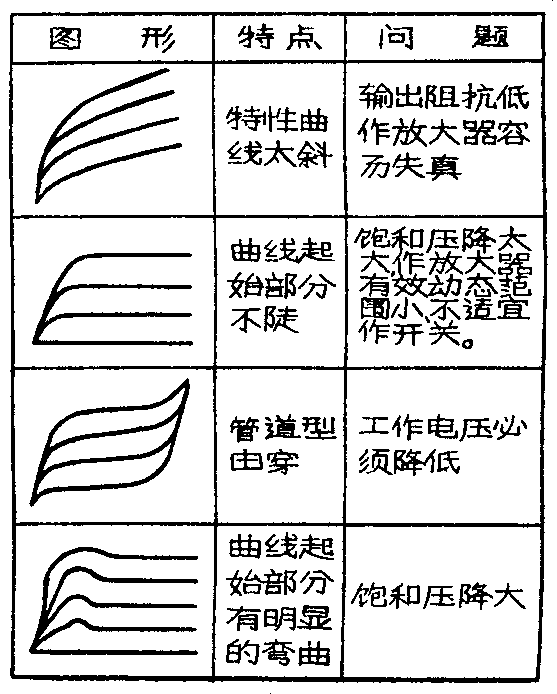 图 形 特点 问 题
特性曲
线太斜
输出阻抗低
作放大器容
失真
曲线起
始部分
不陡
饱和压降太
大作放大器
有效动态范
围小、不适宜
作开关。
管道型
由穿
工作电压必
须降低
曲线起
始部分
有明显
的弯曲
饱和压降大